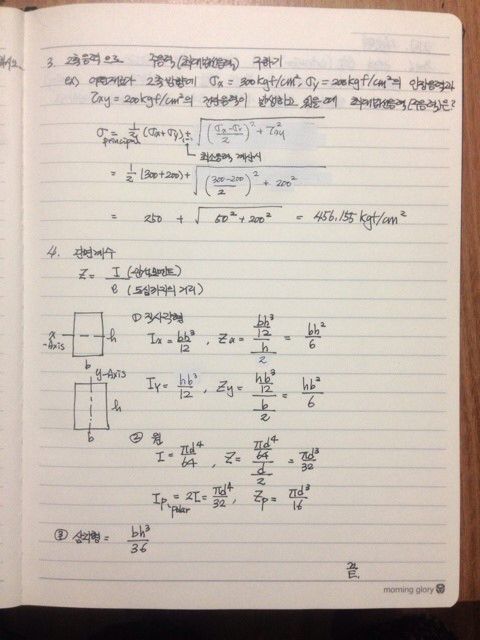 3. 2축응력으로 주응력(최대법선응력) 구하기
ex) 어떤재료가 2축방향에 σx = 300kgf/cm², σy = 200kgf/cm²의 인장응력과
τxy = 200kgf/cm²의 전단응력이 발생하고 있을때 최대법선응력(주응력)은?
σprincipal = 1/2 (σx+σy) ± √((σx-σy/2)² + τxy²)
최소응력 계산시
= 1/2 (300+200) + √((300-200/2)² + 200²)
= 250 + √(50² + 200²) = 456.155 kgf/cm²
4. 단면계수
Z = I (단면2차모멘트) / e (도심까지의 거리)
① 직사각형
x-Axis h b
Ix = bh³/12 , Zx = (bh³/12)/(h/2) = bh²/6
y-Axis h b
Iy = hb³/12 , Zy = (hb³/12)/(b/2) = hb²/6
② 원
I = πd⁴/64 , Z = (πd⁴/64)/(d/2) = πd³/32
Ip = 2I = πd⁴/32 , Zp = πd³/16
polar
③ 삼각형 = bh³/36
끝.
morning glory